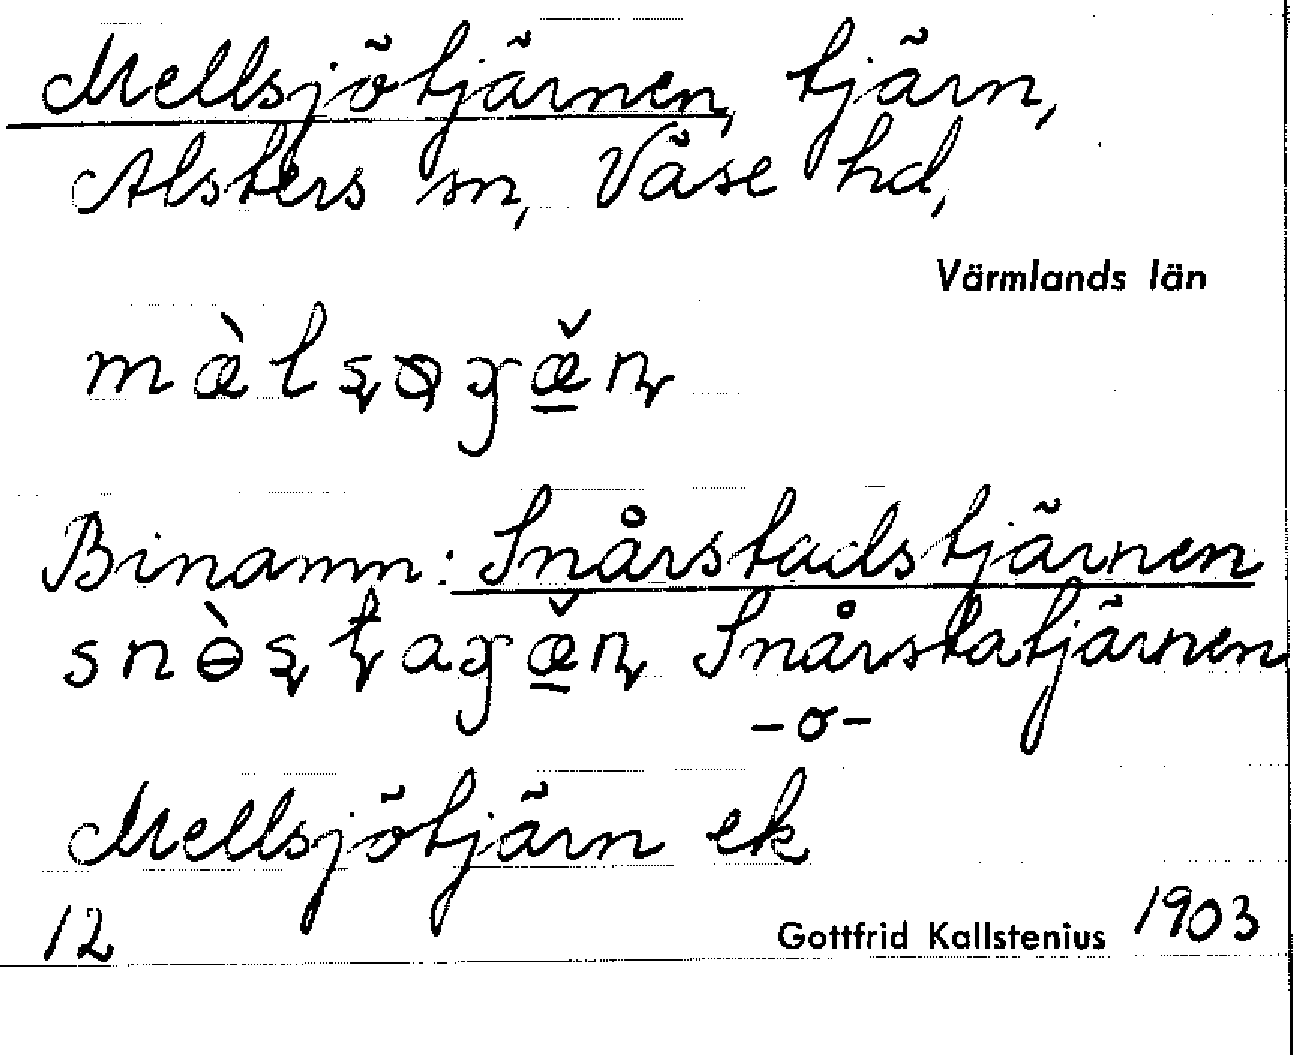 Mellsjötjärnen, tjärn,
Alsters sn, Väse hd,
Värmlands län
Binamn: Snårstadstjärnen
Snårstatjärnen
-o-
Mellsjötjärn ek
12 Gottfrid Kallstenius 1903